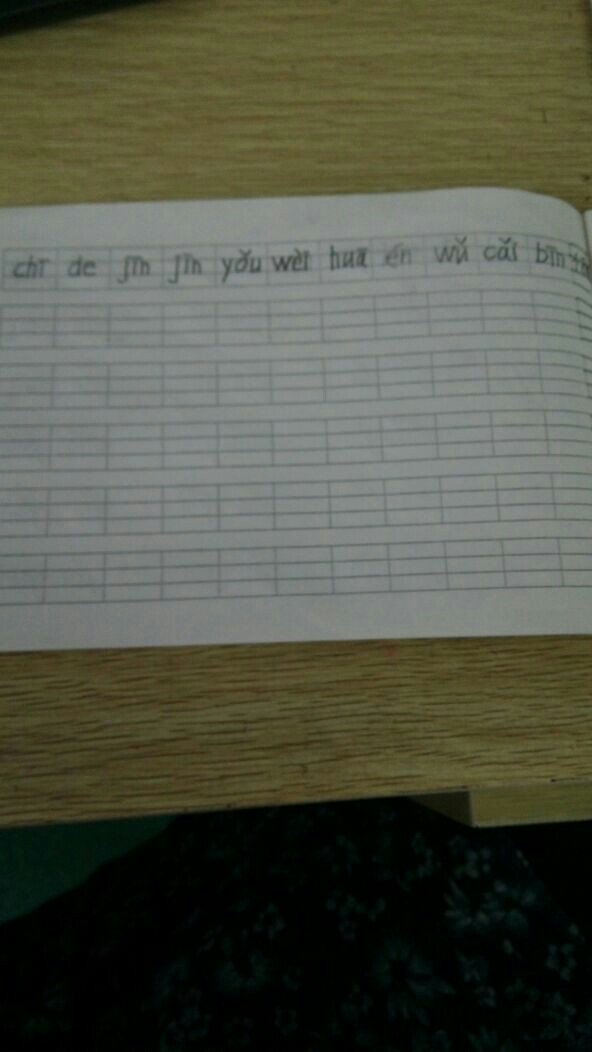 chī de jīn jīn yǒu wèi huā én wǔ cǎi bīn